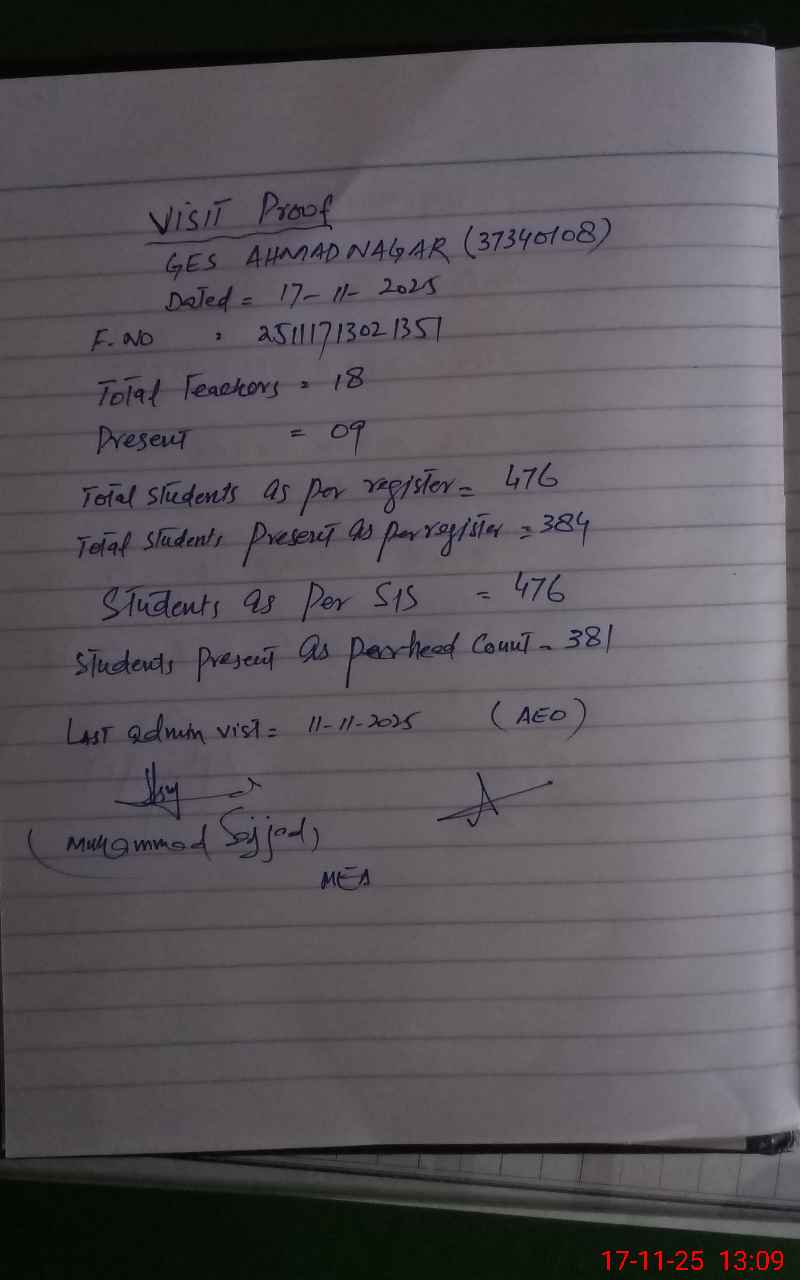 Visit Proof
GES AHMAD NAGAR (37340108)
Dated = 17-11-2025
F.NO : 25111713021351
Total Teachers = 18
Present = 09
Total students as per register = 476
Total students present as per register = 384
Students as per SIS = 476
Students present as per head count = 381
LAST admin vist = 11-11-2025 (AEO)
(Muhammad Sajjad)
MEA
17-11-25 13:09